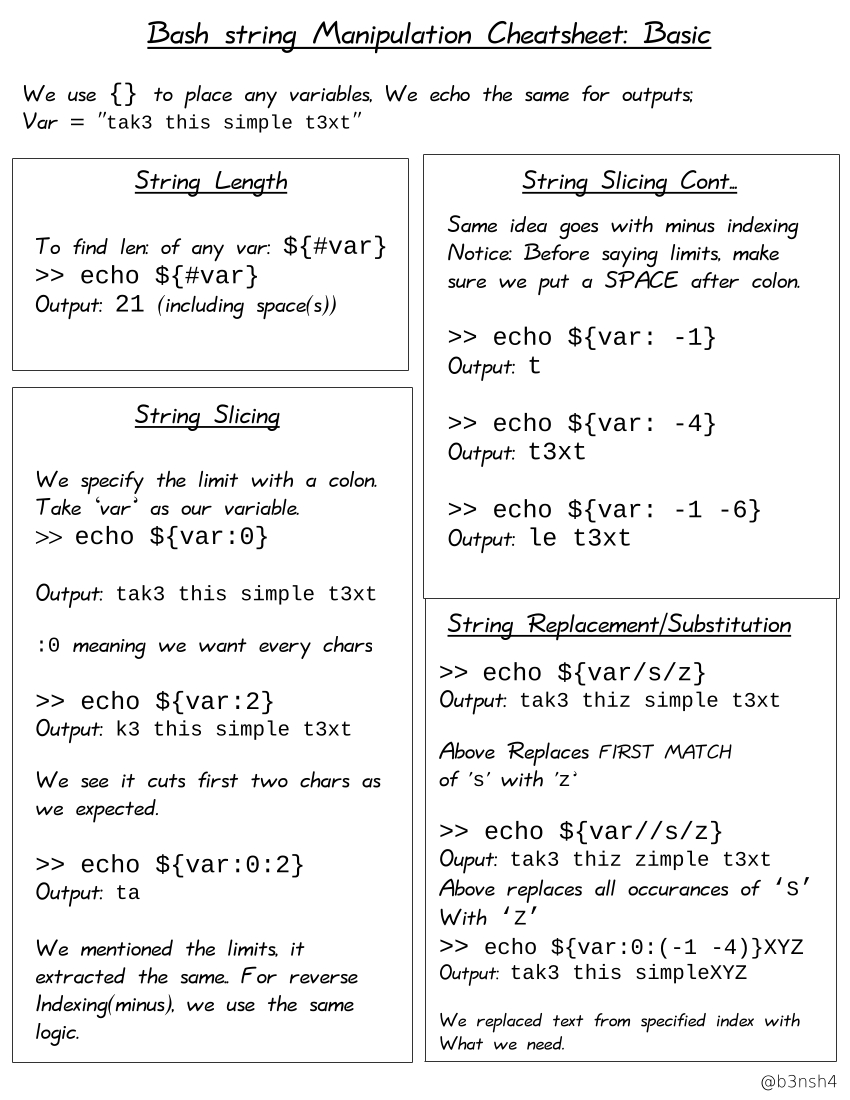 Bash string Manipulation Cheatsheet: Basic
We use {} to place any variables, We echo the same for outputs;
Var = "tak3 this simple t3xt"
String Length
To find len: of any var: ${#var}
>> echo ${#var}
Output: 21 (including space(s))
String Slicing
We specify the limit with a colon.
Take ‘var’ as our variable.
>> echo ${var:0}
Output: tak3 this simple t3xt
:0 meaning we want every chars
>> echo ${var:2}
Output: k3 this simple t3xt
We see it cuts first two chars as
we expected.
>> echo ${var:0:2}
Output: ta
We mentioned the limits, it
extracted the same.. For reverse
Indexing(minus), we use the same
logic.
String Slicing Cont...
Same idea goes with minus indexing
Notice: Before saying limits, make
sure we put a SPACE after colon.
>> echo ${var: -1}
Output: t
>> echo ${var: -4}
Output: t3xt
>> echo ${var: -1 -6}
Output: le t3xt
String Replacement/Substitution
>> echo ${var/s/z}
Output: tak3 thiz simple t3xt
Above Replaces FIRST MATCH
of 's' with 'z‘
>> echo ${var//s/z}
Ouput: tak3 thiz zimple t3xt
Above replaces all occurances of ‘S’
With ‘Z’
>> echo ${var:0:(-1 -4)}XYZ
Output: tak3 this simpleXYZ
We replaced text from specified index with
What we need.
@b3nsh4